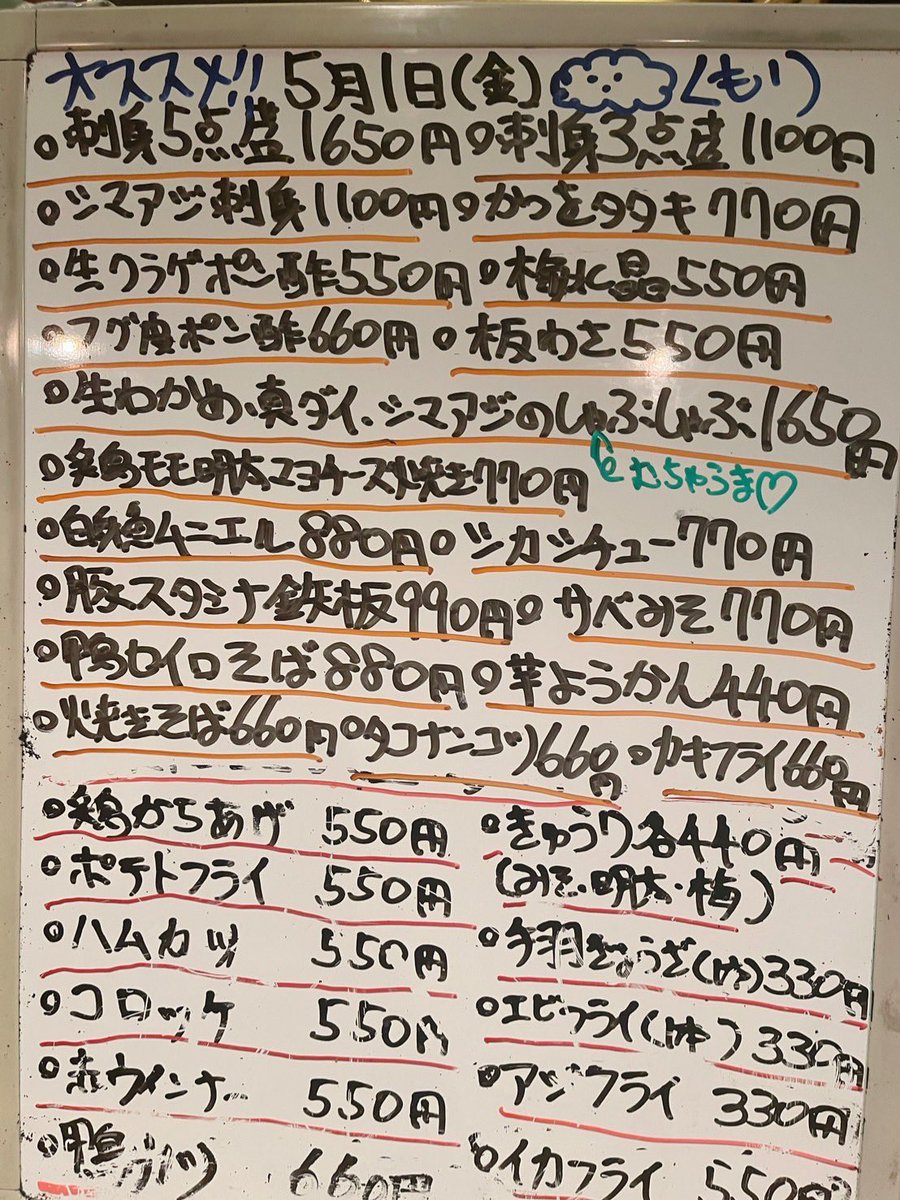 オススメ!! 5月1日(金) くもり
○刺身5点盛1650円 ○刺身3点盛1100円
○シマアジ刺身1100円 ○かつをタタキ770円
○生クラゲポン酢550円 ○梅水晶550円
○フグ皮ポン酢660円 ○板わさ550円
○生わかめ、真ダイ、シマアジのしゃぶしゃぶ1650円
むちゃうま♡
○鶏モモ明太マヨチーズ焼き770円
○白身魚ムニエル880円 ○シカシチュー770円
○豚スタミナ鉄板990円 ○サバみそ770円
○鴨セイロそば880円 ○芋ようかん440円
○焼きそば660円 ○タコナンコツ660円 ○カキフライ660円
○鶏からあげ 550円 ○きゅうり各440円
○ポテトフライ 550円 (みそ・明太・梅)
○ハムカツ 550円 ○手羽ぎょうざ(1本)330円
○コロッケ 550円 ○エビフライ(1本)330円
○赤ウインナー 550円 ○アジフライ 330円
○鴨 660円 ○イカフライ 550